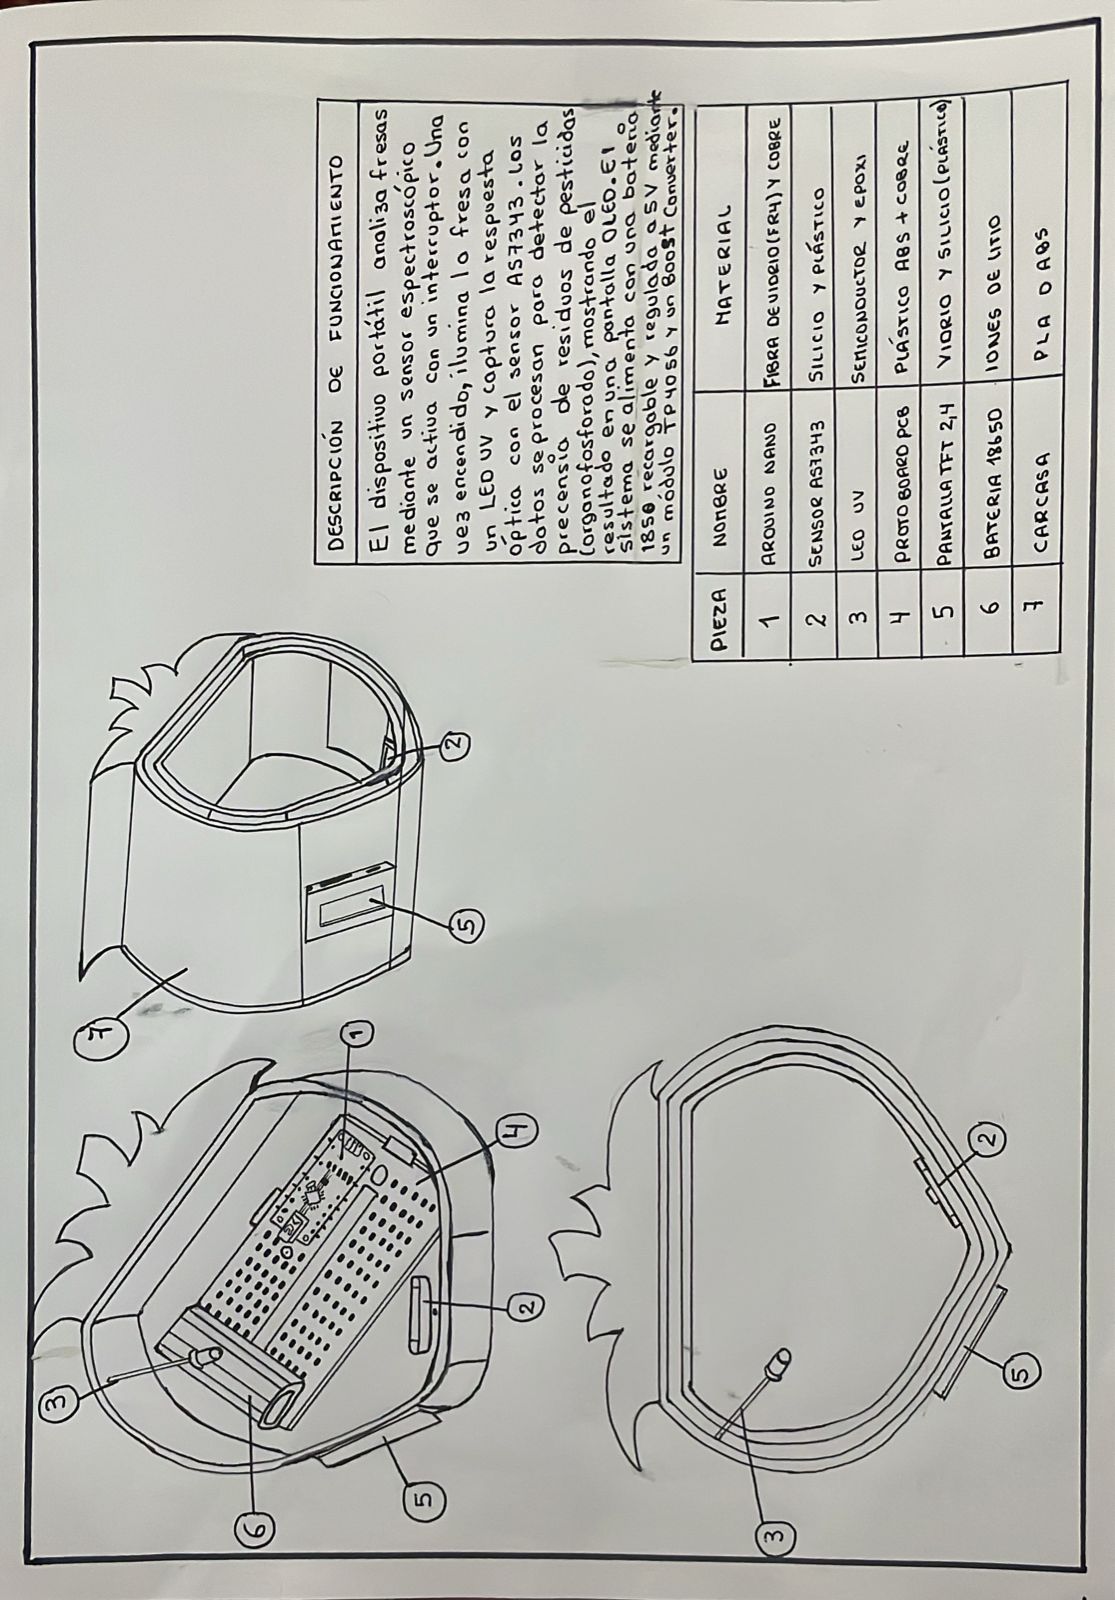 DESCRIPCIÓN DE FUNCIONAMIENTO
El dispositivo portátil analiza fresas
mediante un sensor espectroscópico
que se activa con un interruptor. Una
vez encendido, ilumina la fresa con
un LED UV y captura la respuesta
óptica con el sensor AS7343. Los
datos se procesan para detectar la
precensia de residuos de pesticidas
(organofosforado), mostrando el
resultado en una pantalla OLED. El
sistema se alimenta con una batería
1850 recargable y regulada a 5V mediante
un módulo TP4056 y un Boost Converter.
PIEZA NOMBRE MATERIAL
1 ARDUINO NANO FIBRA DE VIDRIO (FR4) Y COBRE
2 SENSOR AS7343 SILICIO Y PLÁSTICO
3 LED UV SEMICONDUCTOR Y EPOXI
4 PROTOBOARD PCB PLÁSTICO ABS + COBRE
5 PANTALLA TFT 2,4 VIDRIO Y SILICIO (PLÁSTICO)
6 BATERIA 18650 IONES DE LITIO
7 CARCASA PLA O ABS
7
5
2
3
6
5
2
4
1
3
5
2